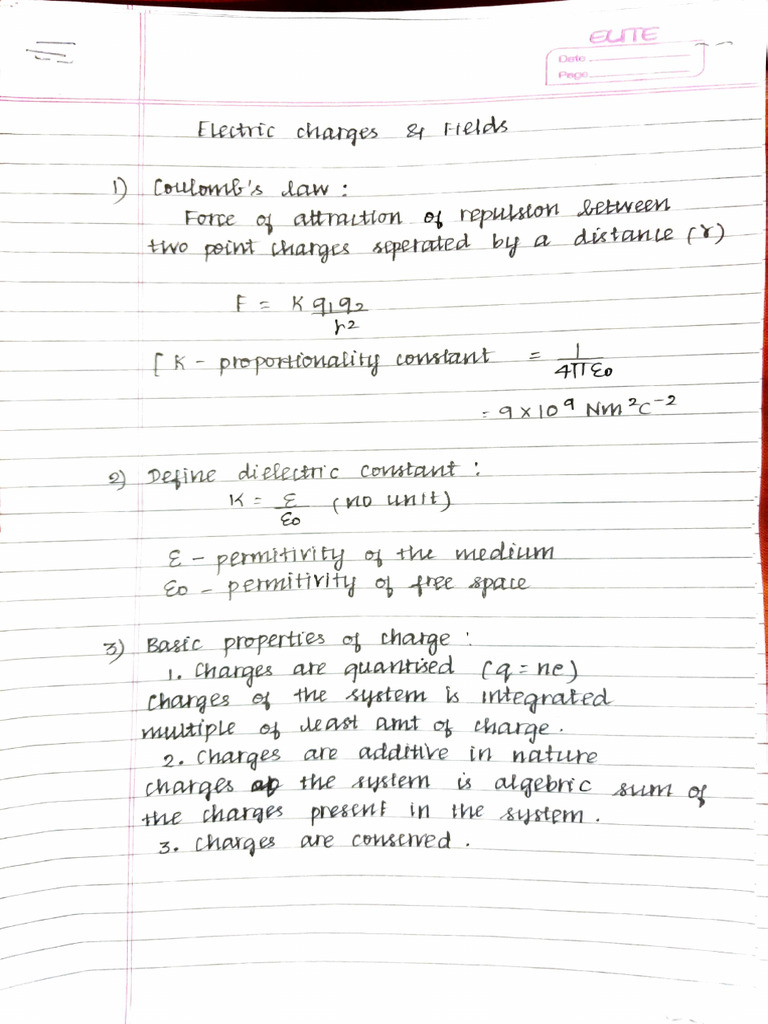 ELITE
Date
Page
Electric charges & Fields
1) Coulomb's law :
Force of attraction of repulsion between
two point charges seperated by a distance (r)
F = K q1q2
r2
[ K - proportionality constant = 1
4π ε0
= 9 × 10 9 Nm 2C-2
2) Define dielectric constant :
K = ε (no unit)
ε0
ε - permitivity of the medium
ε0 - permitivity of free space
3) Basic properties of charge :
1. Charges are quantised (q = ne)
charges of the system is integrated
multiple of least amt of charge.
2. Charges are additive in nature
charges of the system is algebric sum of
the charges present in the system.
3. Charges are conserved.